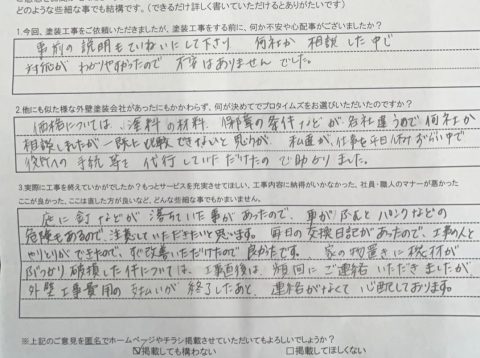 どのような些細な事でも結構です。(できるだけ詳しく書いていただけるとありがたいです)
1.今回、塗装工事をご依頼いただきましたが、塗装工事をする前に、何か不安や心配事がございましたか?
事前の説明もていねいにして下さり 何社か相談した中で
対応がわかりやすかったので 不安はありませんでした。
2.他にも似た様な外壁塗装会社があったにもかかわらず、何が決めてでプロタイムズをお選びいただいたのですか?
価格については、塗料の材料、保障の条件などが各社違うので何社か
相談しましたが一様に比較できないと思うが、私達が仕事を平日休みずらい中で
役所への手続等を代行していただけたので助かりました。
3.実際に工事を終えていかがでしたか?もっとサービスを充実させてほしい、工事内容に納得がいかなかった、社員・職人のマナーが悪かった
ここが良かった、ここは直した方が良いなど、どんな些細な事でもかまいません。
庭に釘などが落ちていた事があったので、車がふんでパンクなどの
危険もあるので、注意していただきたいと思います。毎日の交換日記があったので、工事の人と
やりとりができたので、すぐ改善いただけたので良かったです。家の物置きに 材が
ぶつかり破損した件については、工事直後は 回にご連絡いただきましたが
外壁工事費用の支払いが終了したあと、連絡がなくて心配しております。
※上記のご意見を匿名でホームページやチラシ掲載させていただいてもよろしいでしょうか?
☑掲載しても構わない □掲載してほしくない